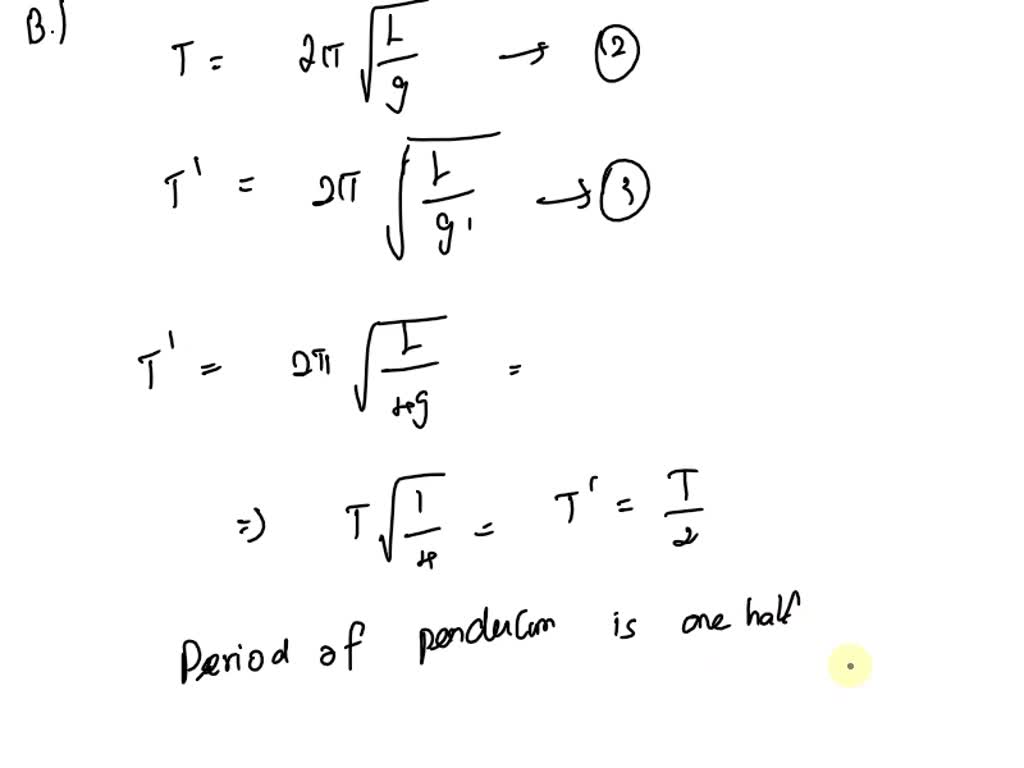 B.)
T = 2π √(L/g) → ②
T' = 2π √(L/g') → ③
T' = 2π √(L/4g) =
=) T √(1/4) = T' = T/2
Period of pendulum is one half